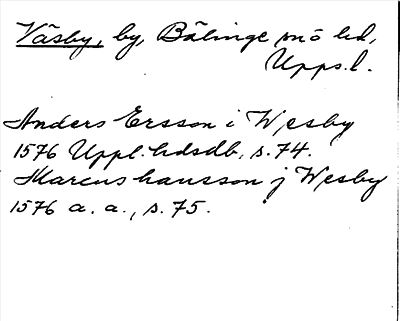 Väsby, by, Bälinge sn ö hd,
Upps. l.
Anders Ersson i Wesby
1576 Uppl. hdsdb, s. 74.
Marcus hansson j Wesby
1576 a. a., s. 75.